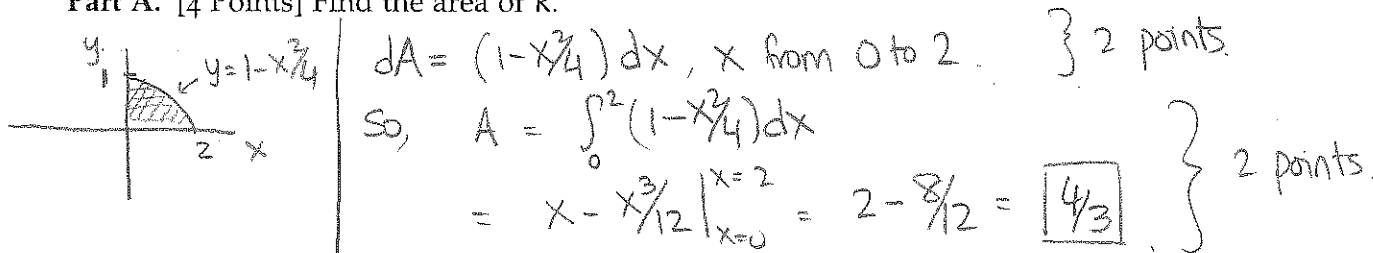 Part A. [4 Points] Find the area of R.
y
1
y = 1-x²/4
2 x
dA = (1-x²/4) dx, x from 0 to 2. } 2 points.
So, A = ∫₀² (1-x²/4) dx
= x - x³/12 |ₓ₌₀ˣ⁼² = 2 - 8/12 = 4/3 . } 2 points.